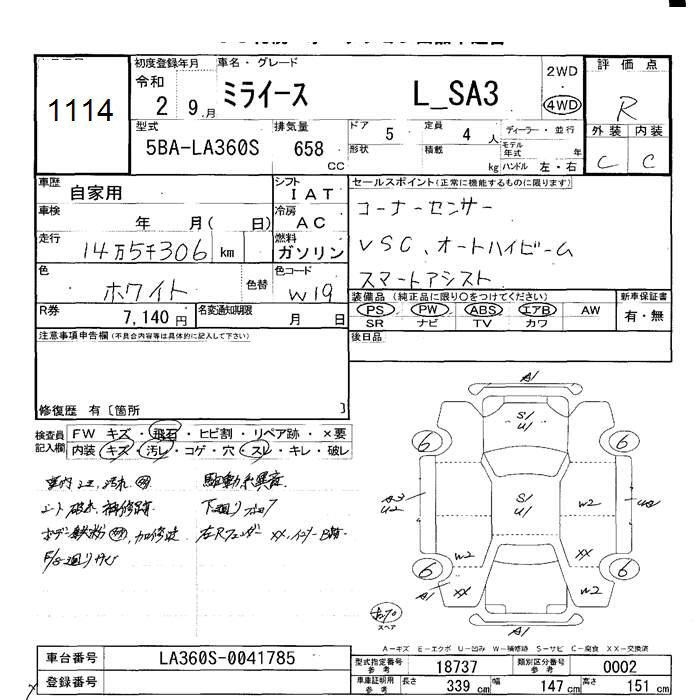 1114
初度登録年月
令和
2 9.月
車名・グレード
ミライース L_SA3
2WD
4WD
評価点
R
外装 内装
C C
型式
5BA-LA360S
排気量
658
CC
ドア
5
形状
定員
4 人
積載
kg
ディーラー・並行
モデル年式 年
ハンドル 左・右
車歴
自家用
シフト
IAT
車検
年 月( 日)
冷房
AC
走行
14万5千306 km
燃料
ガソリン
色
ホワイト
色替
色コード
W19
R券
7,140円
名変通知期限
月 日
セールスポイント(正常に機能するものに限ります)
コーナーセンサー
VSC、オートハイビーム
スマートアシスト
装備品(純正品に限り○をつけてください)
PS PW ABS エアB AW
SR ナビ TV カワ
新車保証書
有・無
後日品
注意事項申告欄(不具合内容等は具体的に記入して下さい)
修復歴 有〔箇所 〕
検査員記入欄
FW キズ・飛石・ヒビ割・リペア跡・×要
内装 キズ・汚レ・コゲ・穴・スレ・キレ・破レ
駆動系異音
下廻り
A1
S/U/
6 6
S/U/
A3
U2
W2
W2
XX
6 6
A1
XX
W2
スペア
A1
A-キズ E-エクボ U-凹み W-補修跡 S-サビ C-腐食 XX-交換済
車台番号
LA360S-0041785
登録番号
型式指定番号 参考
18737
類別区分番号 参考
0002
車庫証明用 参考
長さ 339 cm
幅 147 cm
高さ 151 cm